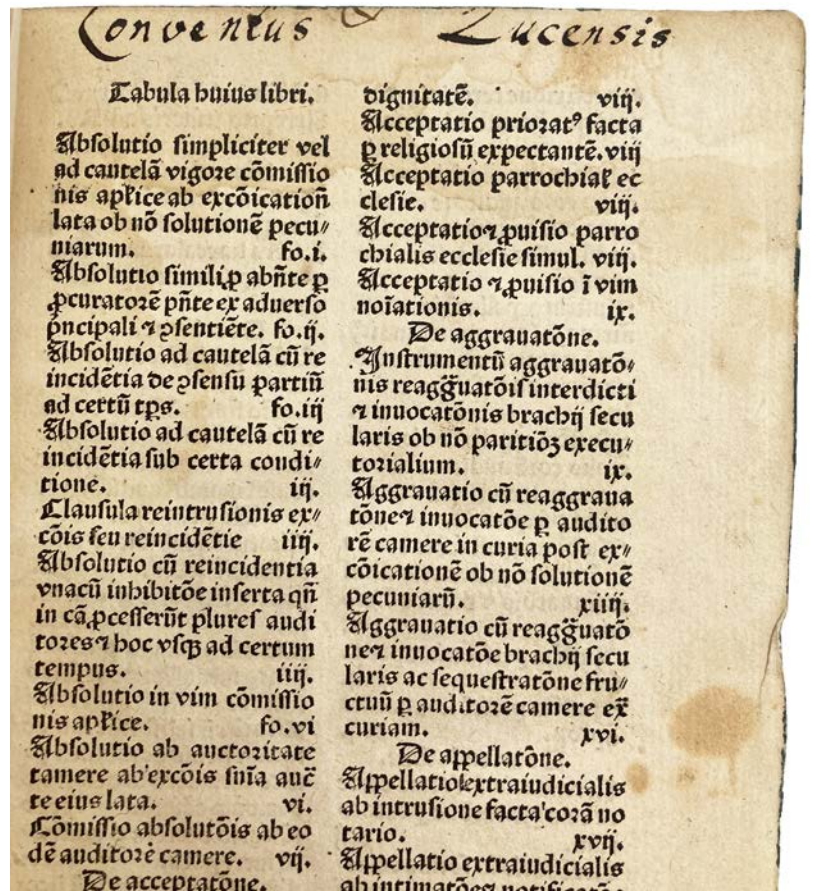 Conventus Lucensis
Tabula huius libri.
Absolutio simpliciter vel
ad cautelā vigore cōmissio
nis aplīce ab excōicationī
lata ob nō solutionē pecu⸗
niarum. fo.i.
Absolutio simili ꝓ abn̄te ꝑ
ꝓcuratorē pn̄te ex aduerso
pn̄cipali ⁊ ꝯsentiēte. fo.ij.
Absolutio ad cautelā cū re
incidētia de ꝯsensu partiū
ad certū tp̄s. fo.iij
Absolutio ad cautelā cū re
incidētia sub certa condi⸗
tione. iij.
Clausula reintrusionis ex⸗
cōis seu reincidētie iiij.
Absolutio cū reincidentia
vnacū inhibitōe inserta qn̄
in cā ꝓcesserūt plures audi
tores ⁊ hoc vsqꝫ ad certum
tempus. iiij.
Absolutio in vim cōmissio
nis aplīce. fo.vi
Absolutio ab auctoritate
camere ab excōis sn̄ia auc̄
te eius lata. vi.
Cōmissio absolutōis ab eo
dē auditore camere. vij.
De acceptatōne.
dignitatē. viij.
Acceptatio priorat⁹ facta
ꝑ religiosū expectantē. viij
Acceptatio parrochial̄ ec
clesie. viij.
Acceptatio ⁊ ꝓuisio parro
chialis ecclesie simul. viij.
Acceptatio ⁊ ꝓuisio ī vim
noīationis. ix.
De aggrauatōne.
Instrumentū aggrauatō⸗
nis reaggͣuatōis interdicti
⁊ inuocatōnis brachij secu
laris ob nō paritiōꝫ execu⸗
torialium. ix.
Aggrauatio cū reaggraua
tōne ⁊ inuocatōe ꝑ audito
rē camere in curia post ex⸗
cōicationē ob nō solutionē
pecuniarū. xiiij.
Aggrauatio cū reaggͣuatō
ne ⁊ inuocatōe brachij secu
laris ac sequestratōne fru⸗
ctuū ꝑ auditorē camere ex̄
curiam. xvi.
De appellatōne.
Appellatio extraiudicialis
ab intrusione facta corā no
tario. xvij.
Appellatio extraiudicialis
ab intimatōe ⁊